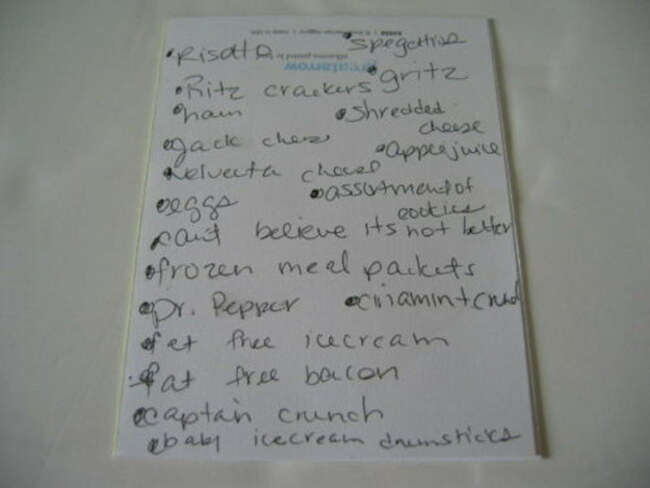 • Risotto
• Spegettios
greatarrow
• Ritz crackers
• gritz
• ham
• shredded cheese
• Jack cheese
• Apple juice
• Velveeta cheese
• eggs
• assortment of cookies
• can't believe its not better
• frozen meal packets
• Dr. Pepper
• cinamint crud
• fat free icecream
• fat free bacon
• captain crunch
• baby icecream drumsticks